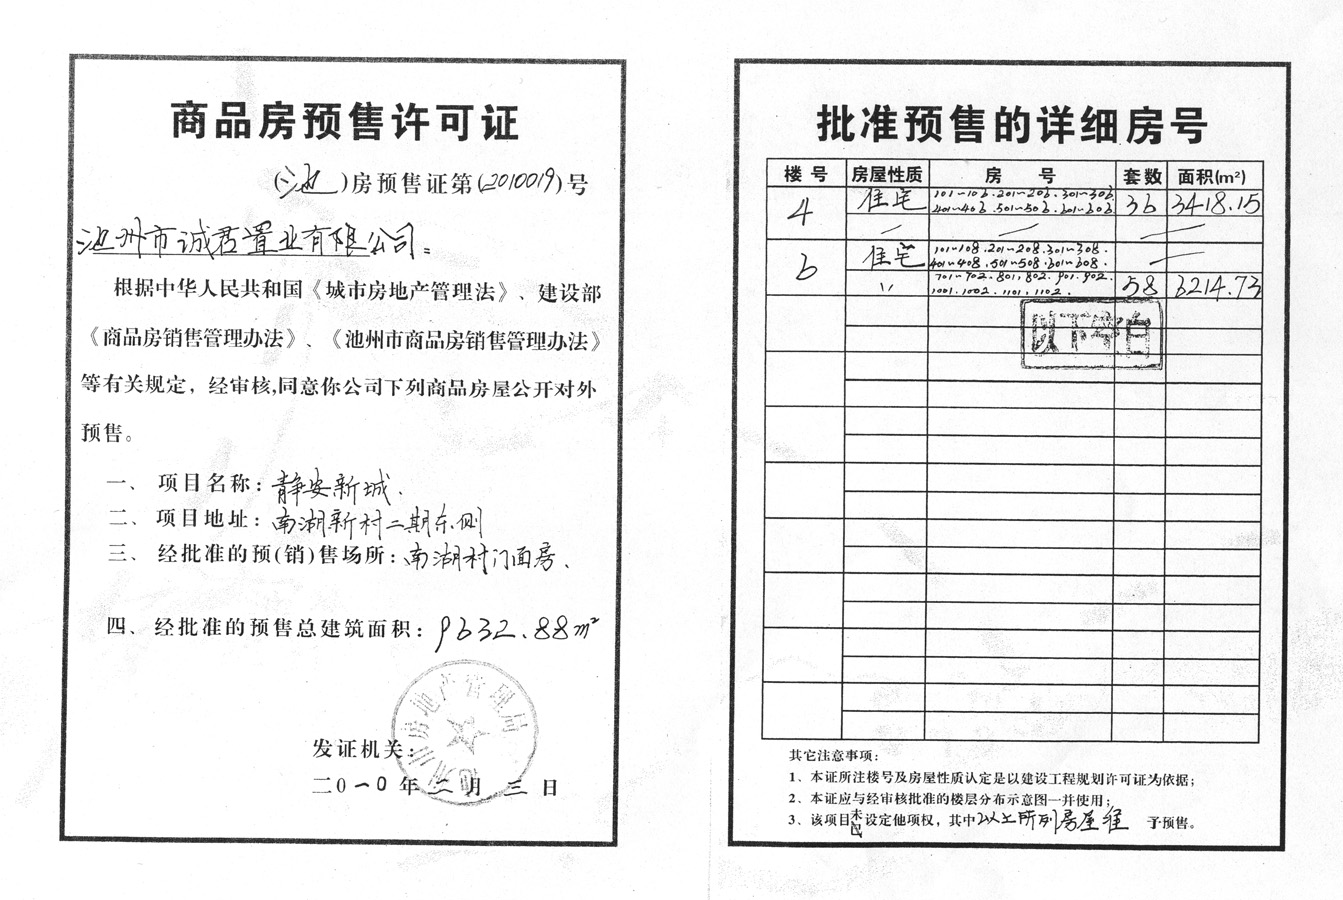 商品房预售许可证
(池)房预售证第(2010019)号
池州市诚君置业有限公司:
根据中华人民共和国《城市房地产管理法》、建设部
《商品房销售管理办法》、《池州市商品房销售管理办法》
等有关规定，经审核,同意你公司下列商品房屋公开对外
预售。
一、项目名称：静安新城.
二、项目地址：南湖新村二期东侧
三、经批准的预(销)售场所：南湖村门面房、
四、经批准的预售总建筑面积：9632.88m²
发证机关：
二0一0年二月三日
池州市房地产管理局
批准预售的详细房号
楼号 房屋性质 房号 套数 面积(m²)
4 住宅 101~106.201~206.301~306.
401~406.501~506.601~606 36 3418.15
6 住宅 101~108.201~208.301~308.
401~408.501~508.601~608.
〃 701~702.801,802.901.902
1001.1002.1101,1102. 58 6214.73
以下空白
其它注意事项：
1、本证所注楼号及房屋性质认定是以建设工程规划许可证为依据；
2、本证应与经审核批准的楼层分布示意图一并使用；
3、该项目未设定他项权，其中以上所列房屋准予预售。